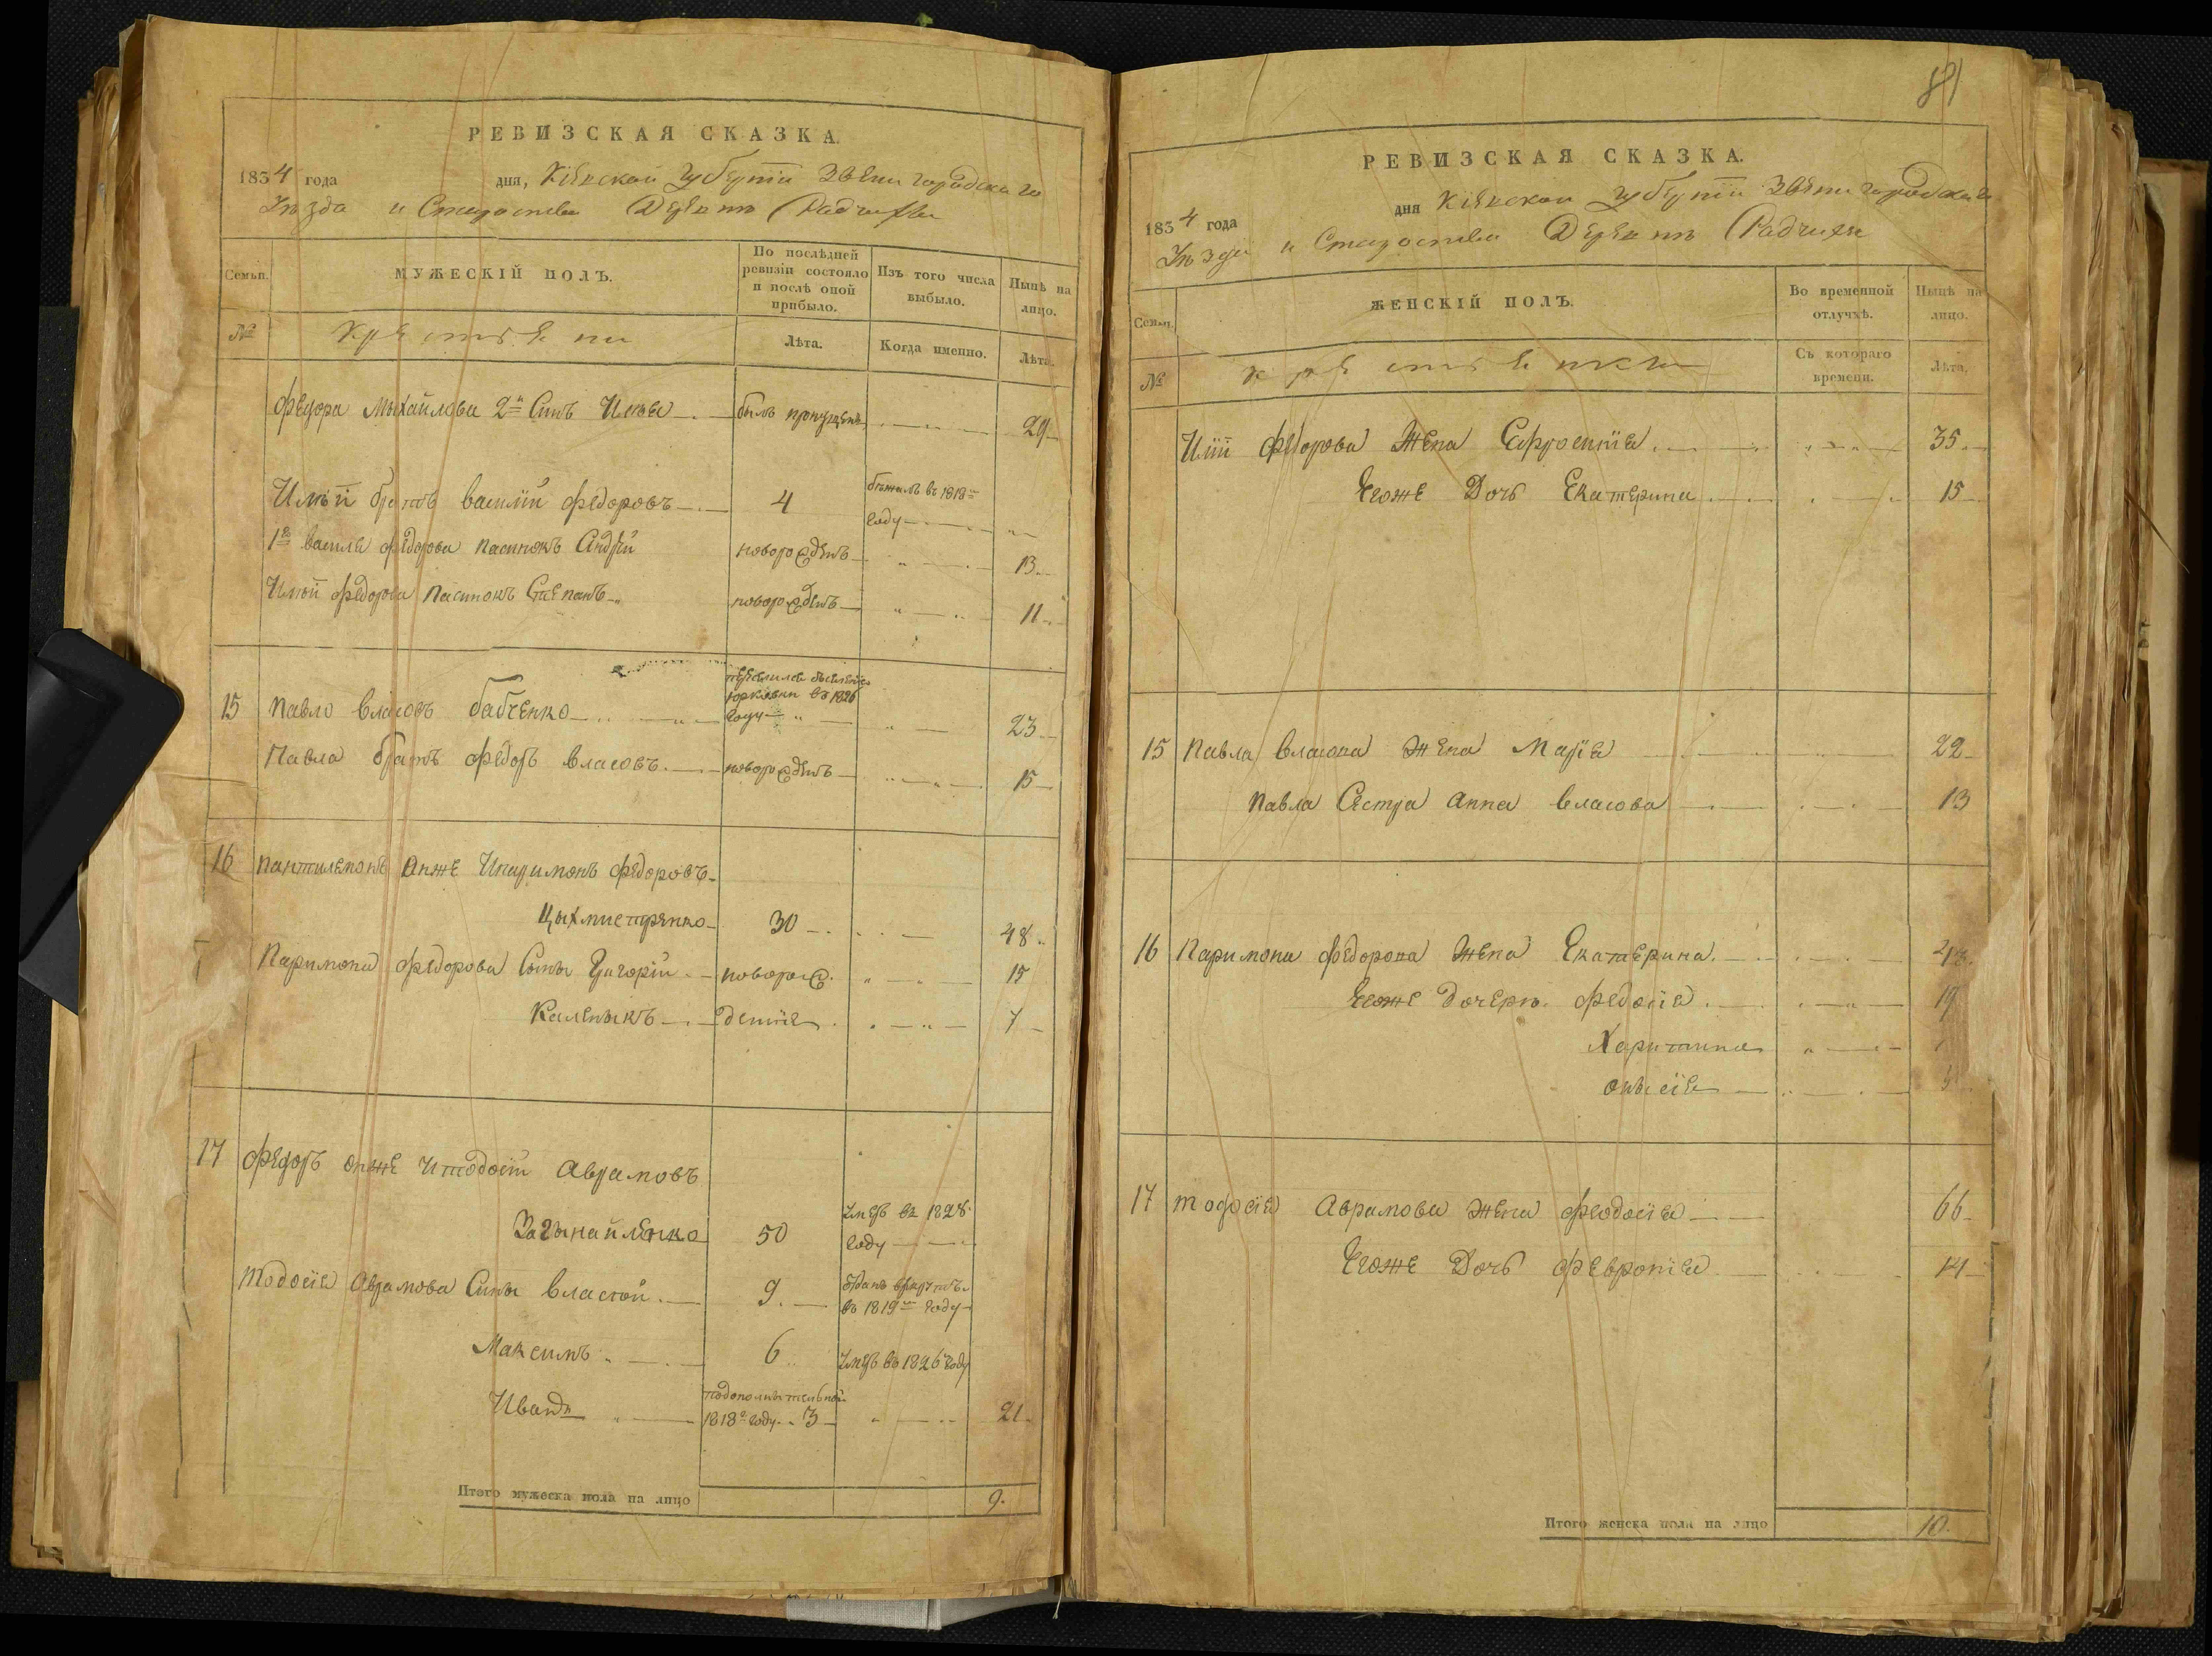 РЕВИЗСКАЯ СКАЗКА.
1834 года дня, Кіевской Губерніи Звенигородскаго
Уѣзда и Староства Деревнѣ Радчихи
Семьи. МУЖЕСКІЙ ПОЛЪ. По послѣдней ревизіи состояло и послѣ оной прибыло. Изъ того числа выбыло. Нынѣ на лицо.
№ Крестьяни Лѣта. Когда именно. Лѣта.
Федора Михайлова 2й Синъ Илья былъ пропущенъ 29
Ильи братъ василій федоровъ 4 бѣжалъ въ 1818м
году
1е василя федорова пасинокъ Андрій новорожденъ 13
Ильи федорова пасинокъ Степанъ новорожденъ 11
15 Павло власовъ бабченко
въ 1826
году 23
Павла братъ федоръ власовъ новорожденъ 15
16 Пантилемонъ Онже Ипаримонъ федоровъ
Цыхмистренко 30 48
Паримона федорова Сыны Григорій новорож 15
Каленыкъ денніе 7
17 Федоръ онже Итодосій Аврамовъ
Загынайленко 50 Умеръ въ 1828
году
Тодосія Аврамова Сыны власой 9 отданъ врекруты
въ 1819м году
Максимъ 6 Умеръ въ 1826 году
Иванъ подополнительной
1818 году 3 21
Итого мужеска пола на лицо 9.
81
РЕВИЗСКАЯ СКАЗКА.
1834 года дня Кіевской Губерніи Звенигородскаго
Уѣзда и Староства Деревнѣ Радчихи
Семьи. ЖЕНСКІЙ ПОЛЪ. Во временной отлучкѣ. Нынѣ на лицо.
№ крестьянки Съ котораго времени. Лѣта.
Иліи федорова Жена Ефросинія 35
Егоже Дочь Екатерина 15
15 Павла власова жена Марія 22
Павла Сестра Анна власова 13
16 Паримона федорова жена Екатерина
Егоже дочери федосія 19
Харитина
Онысія
17 Тодосія Аврамова жена феодосія 66
Егоже Дочь февронія 14
Итого женска пола на лицо 10.